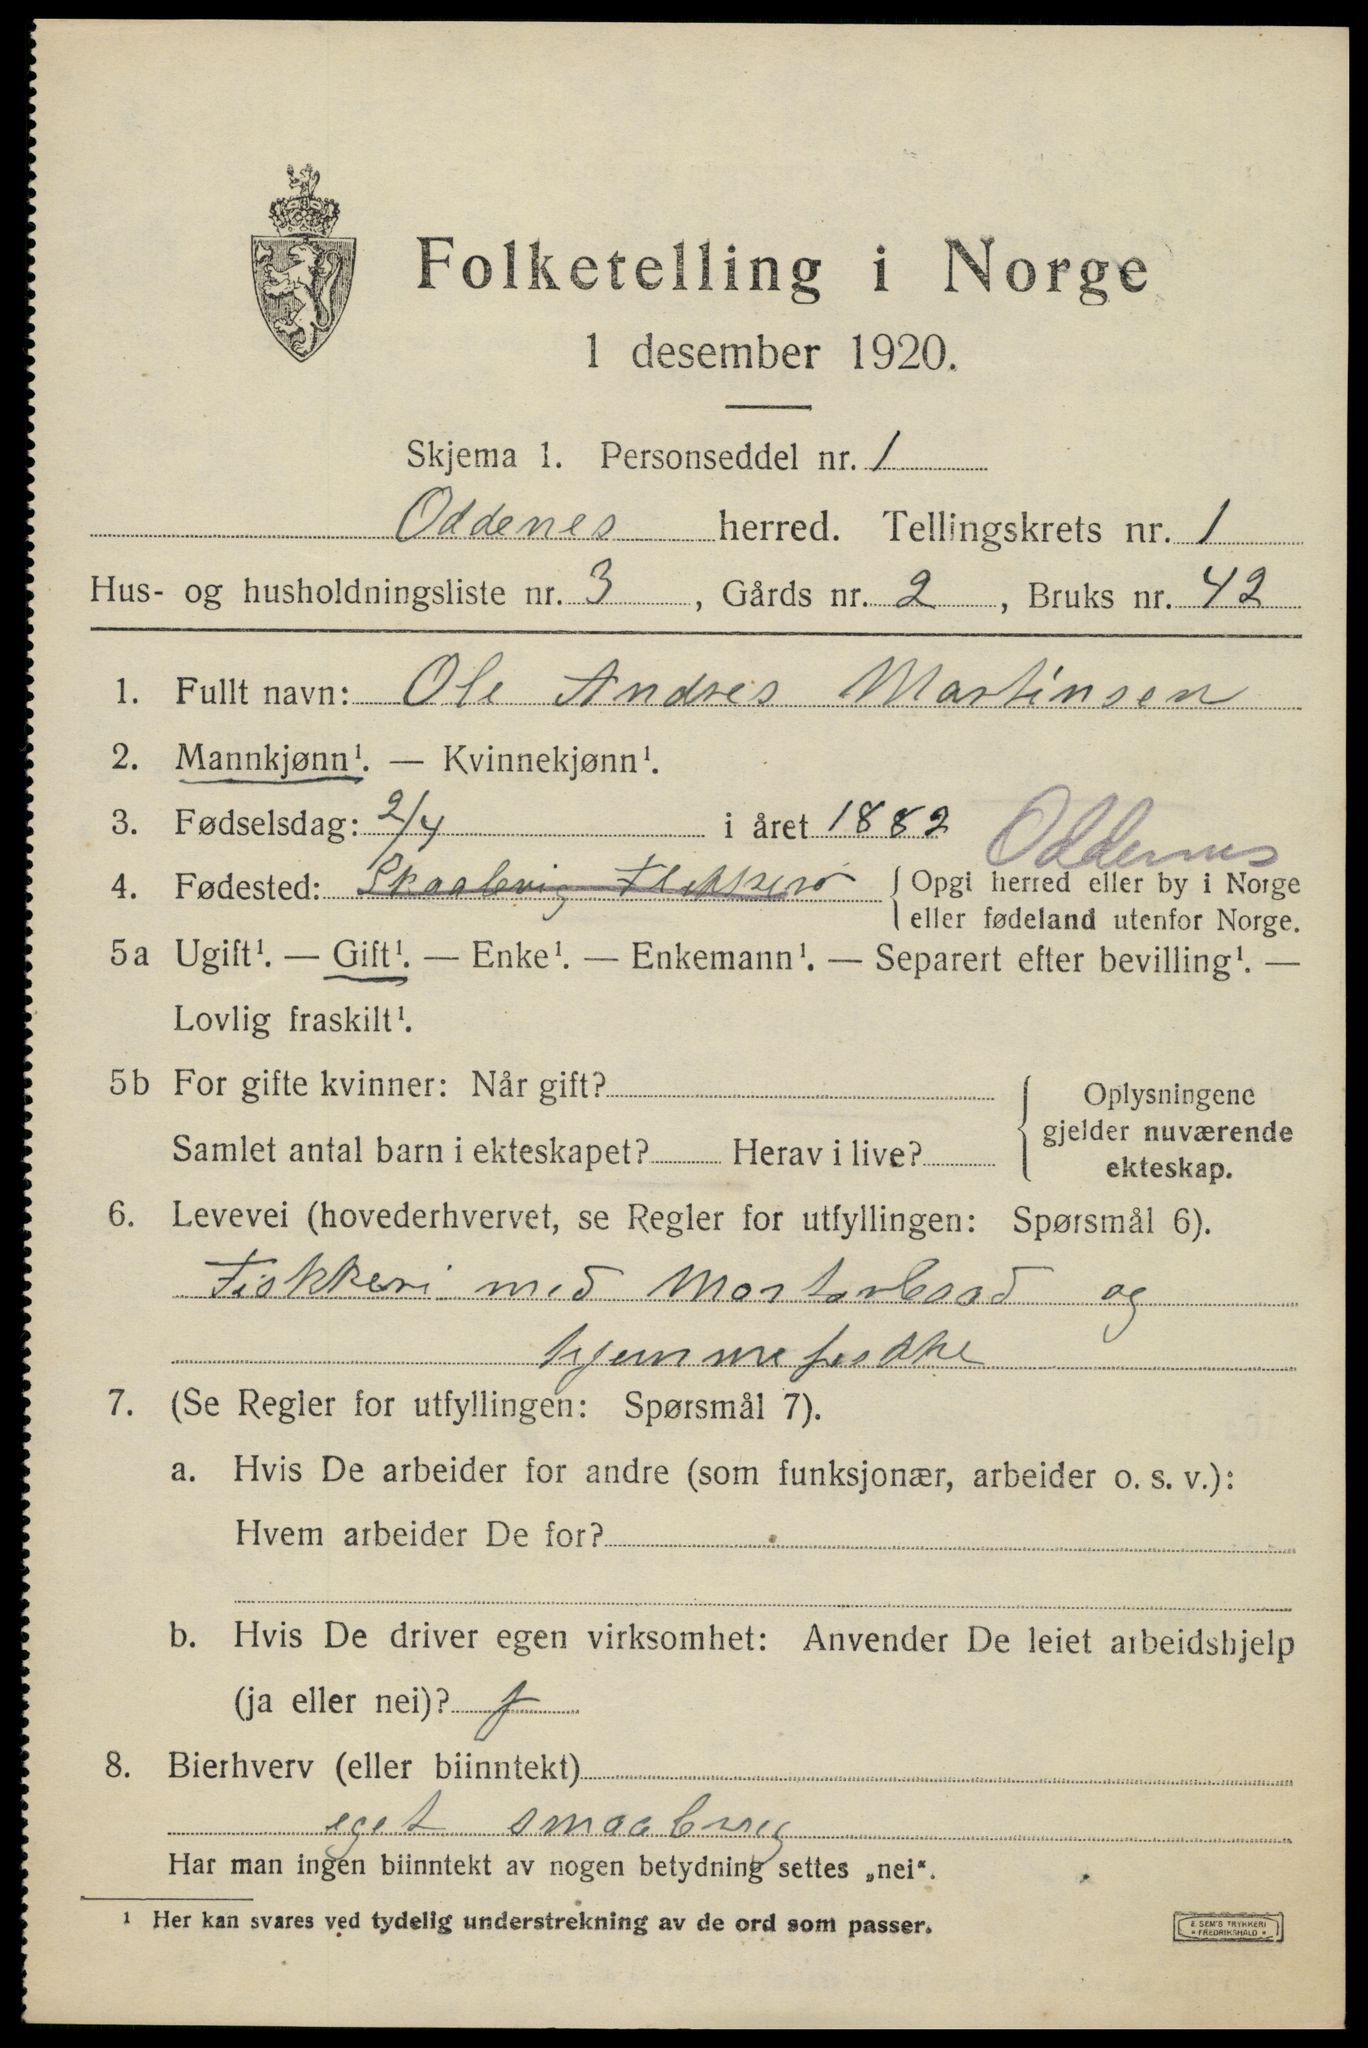 Folketelling i Norge
1 desember 1920.
Skjema 1. Personseddel nr. 1
Oddenes herred. Tellingskrets nr. 1
Hus- og husholdningsliste nr. 3, Gårds nr. 2, Bruks nr. 42
1. Fullt navn: Ole Andres Martinsen
2. Mannkjønn¹. — Kvinnekjønn¹.
3. Fødselsdag: 2/4 i året 1882 Oddernes
4. Fødested: Skaalevig Flekkerø { Opgi herred eller by i Norge
eller fødeland utenfor Norge.
5a Ugift¹. — Gift¹. — Enke¹. — Enkemann¹. — Separert efter bevilling¹. —
Lovlig fraskilt¹.
5b For gifte kvinner: Når gift?
Samlet antal barn i ekteskapet? Herav i live?
{ Oplysningene
gjelder nuværende
ekteskap.
6. Levevei (hovederhvervet, se Regler for utfyllingen: Spørsmål 6).
Fiskkeri med Mortorbaad og
hjemmefiskke
7. (Se Regler for utfyllingen: Spørsmål 7).
a. Hvis De arbeider for andre (som funksjonær, arbeider o. s. v.):
Hvem arbeider De for?
b. Hvis De driver egen virksomhet: Anvender De leiet arbeidshjelp
(ja eller nei)?
8. Bierhverv (eller biinntekt)
eget smaabrug
Har man ingen biinntekt av nogen betydning settes „nei“.
¹ Her kan svares ved tydelig understrekning av de ord som passer.
E. SEM'S TRYKKERI
FREDRIKSHALD